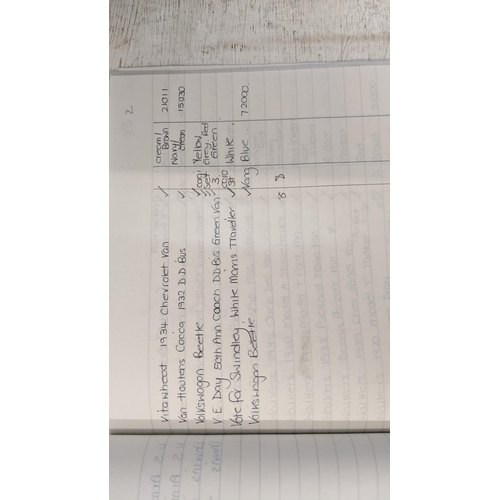 2
Vitawheat 1934 Chevrolet Van ✓ Cream/ Brown 21011
Van Houtens Cocoa 1932 D.D. Bus ✓ Navy/ Cream 15030
Volkswagon Beetle ✓ Conv Yellow
V E Day 50th Ann Coach DD Bus Green Van ✓ Set 3 Grey Red Green
Vote for Swindley. White Morris Traveller ✓ White
Volkswagon Beetle ✓ Blue. 72000.
8 8